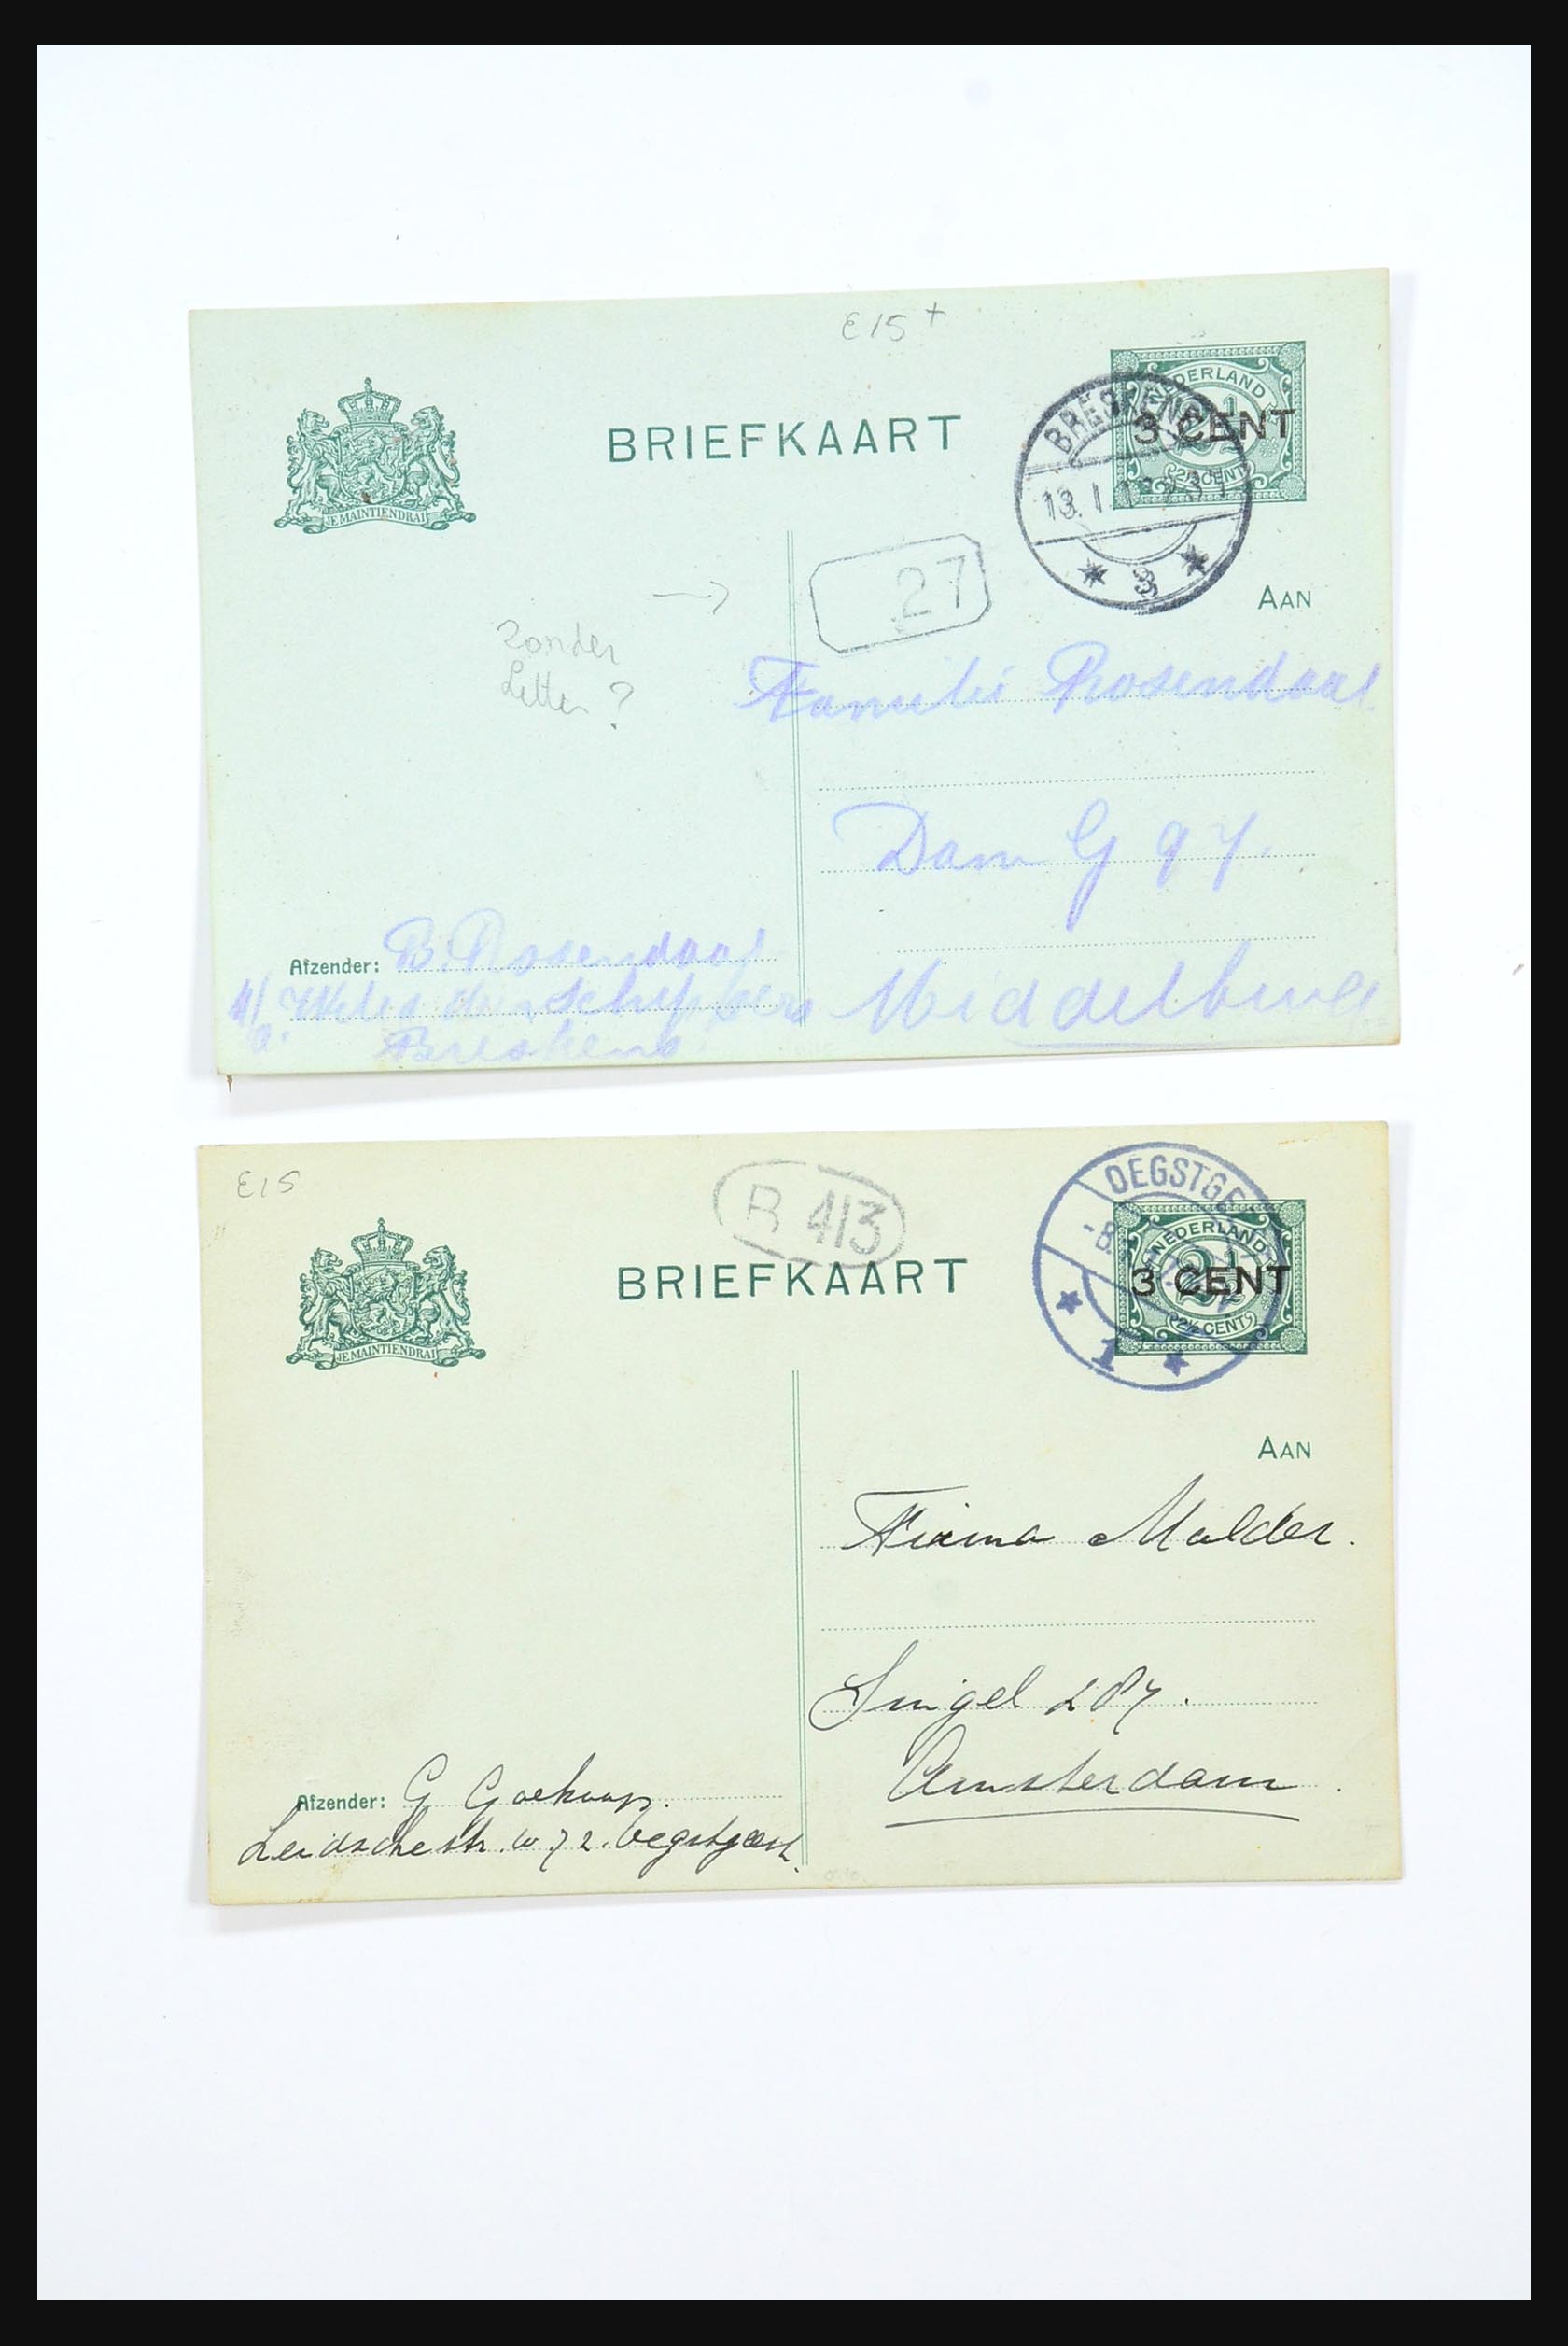 E15+
BRIEFKAART
NEDERLAND
3 CENT
2½ CENT
JE MAINTIENDRAI
BRESKENS
13.1.
3
27
AAN
Zonder
Letter?
Familie Rosendaal
Dam G 97.
Middelburg
Afzender: B. Rosendaal
Breskens.
E15
B 413
BRIEFKAART
OEGSTGEEST
-8.
NEDERLAND
3 CENT
2½ CENT
1
JE MAINTIENDRAI
AAN
Firma Mulder.
Singel 287.
Amsterdam.
Afzender: G Goekoop.
Leidschestr.w 72. Oegstgeest.